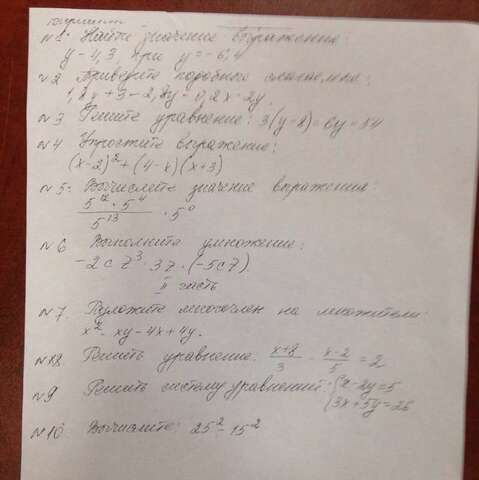 вариант
№1. Найти значение выражения:
у - 4,3 при у = -6,4
№2 Приведите подобные слагаемые:
1,8х + 3 - 2,8у - 0,2х - 2у.
№3 Решите уравнение: 3(у-8) = 6у - 84
№4 Упростите выражение:
(х-2)² + (4-х)(х+3)
№5. Вычислите значение выражения:
5¹² · 5⁴ / 5¹³ · 5⁰
№6 Выполните умножение:
-2cz³ · 3z · (-5cz).
II часть
№7. Разложите многочлен на множители:
х² - ху - 4х + 4у.
№8. Решить уравнение. х+8/3 - х-2/5 = 2
№9 Решить систему уравнений: {х - 2у = 5
{3х + 5у = 26
№10. Вычислите: 25² - 15²